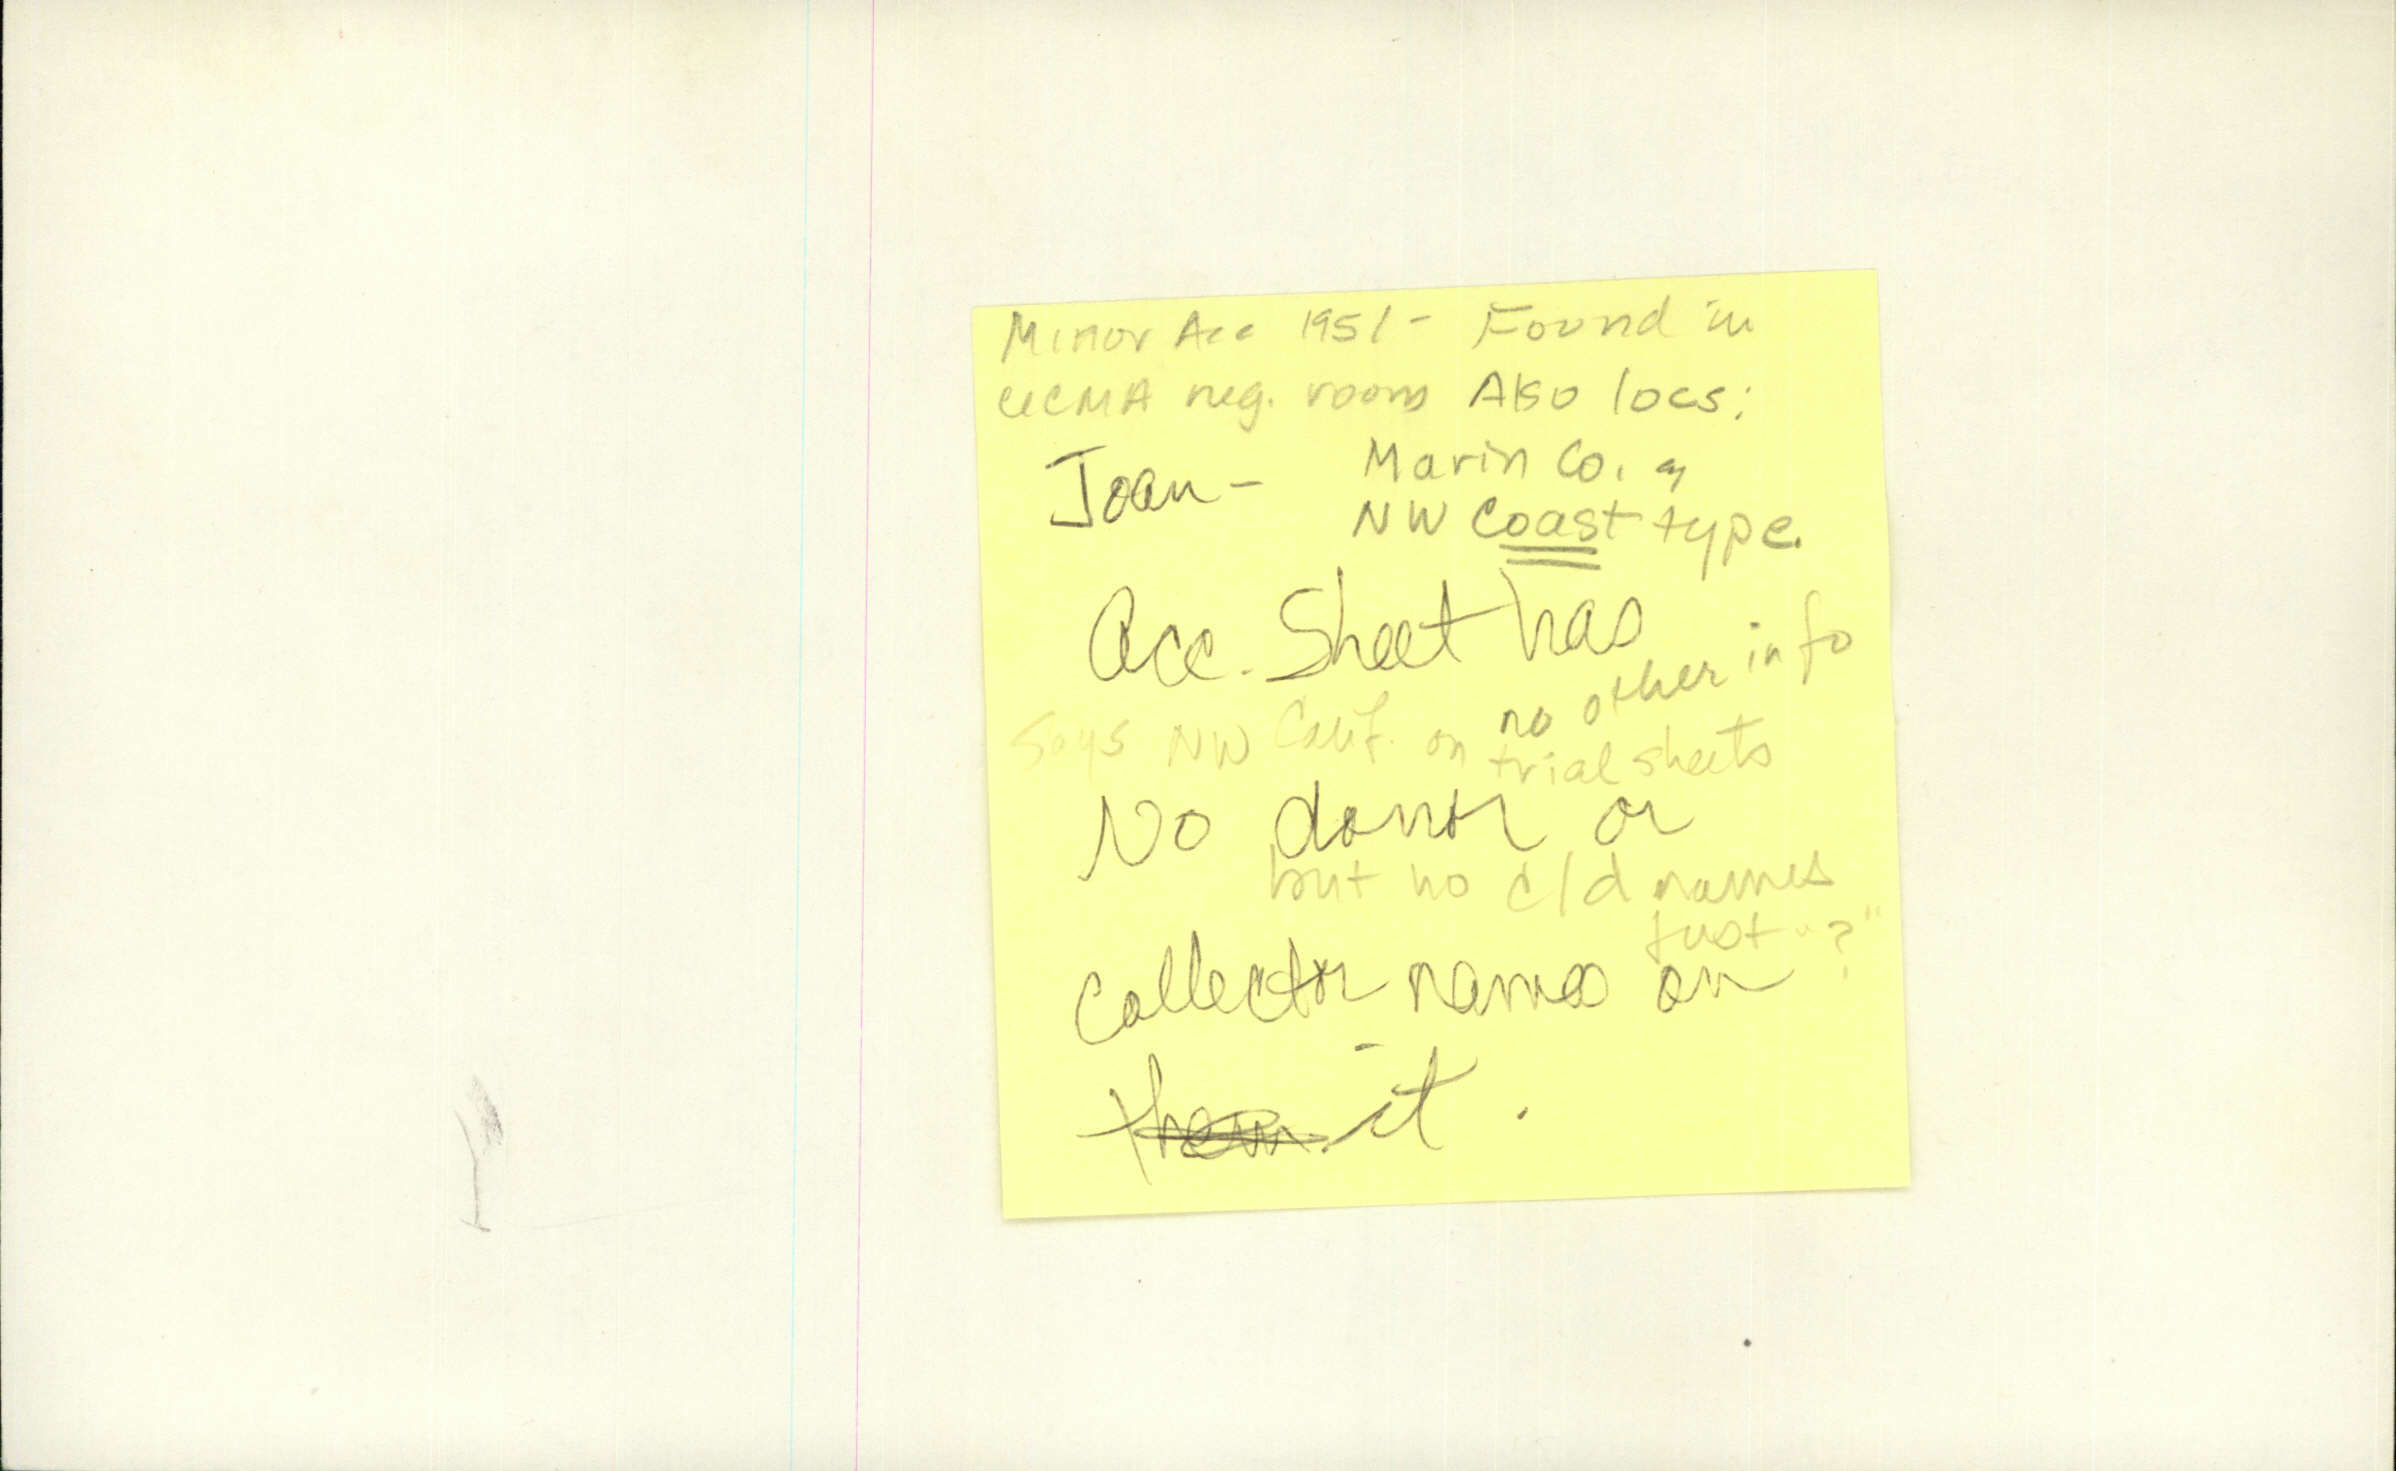 Minor Acc 1951 - Found in
UCMA neg. room Also locs:
Joan - Marin Co. &
NW Coast type.
Acc. Sheet has
no other info
Says NW Calif. on trial sheets
No donor or
but no c/d names
just "?"
collector names on
them. it.